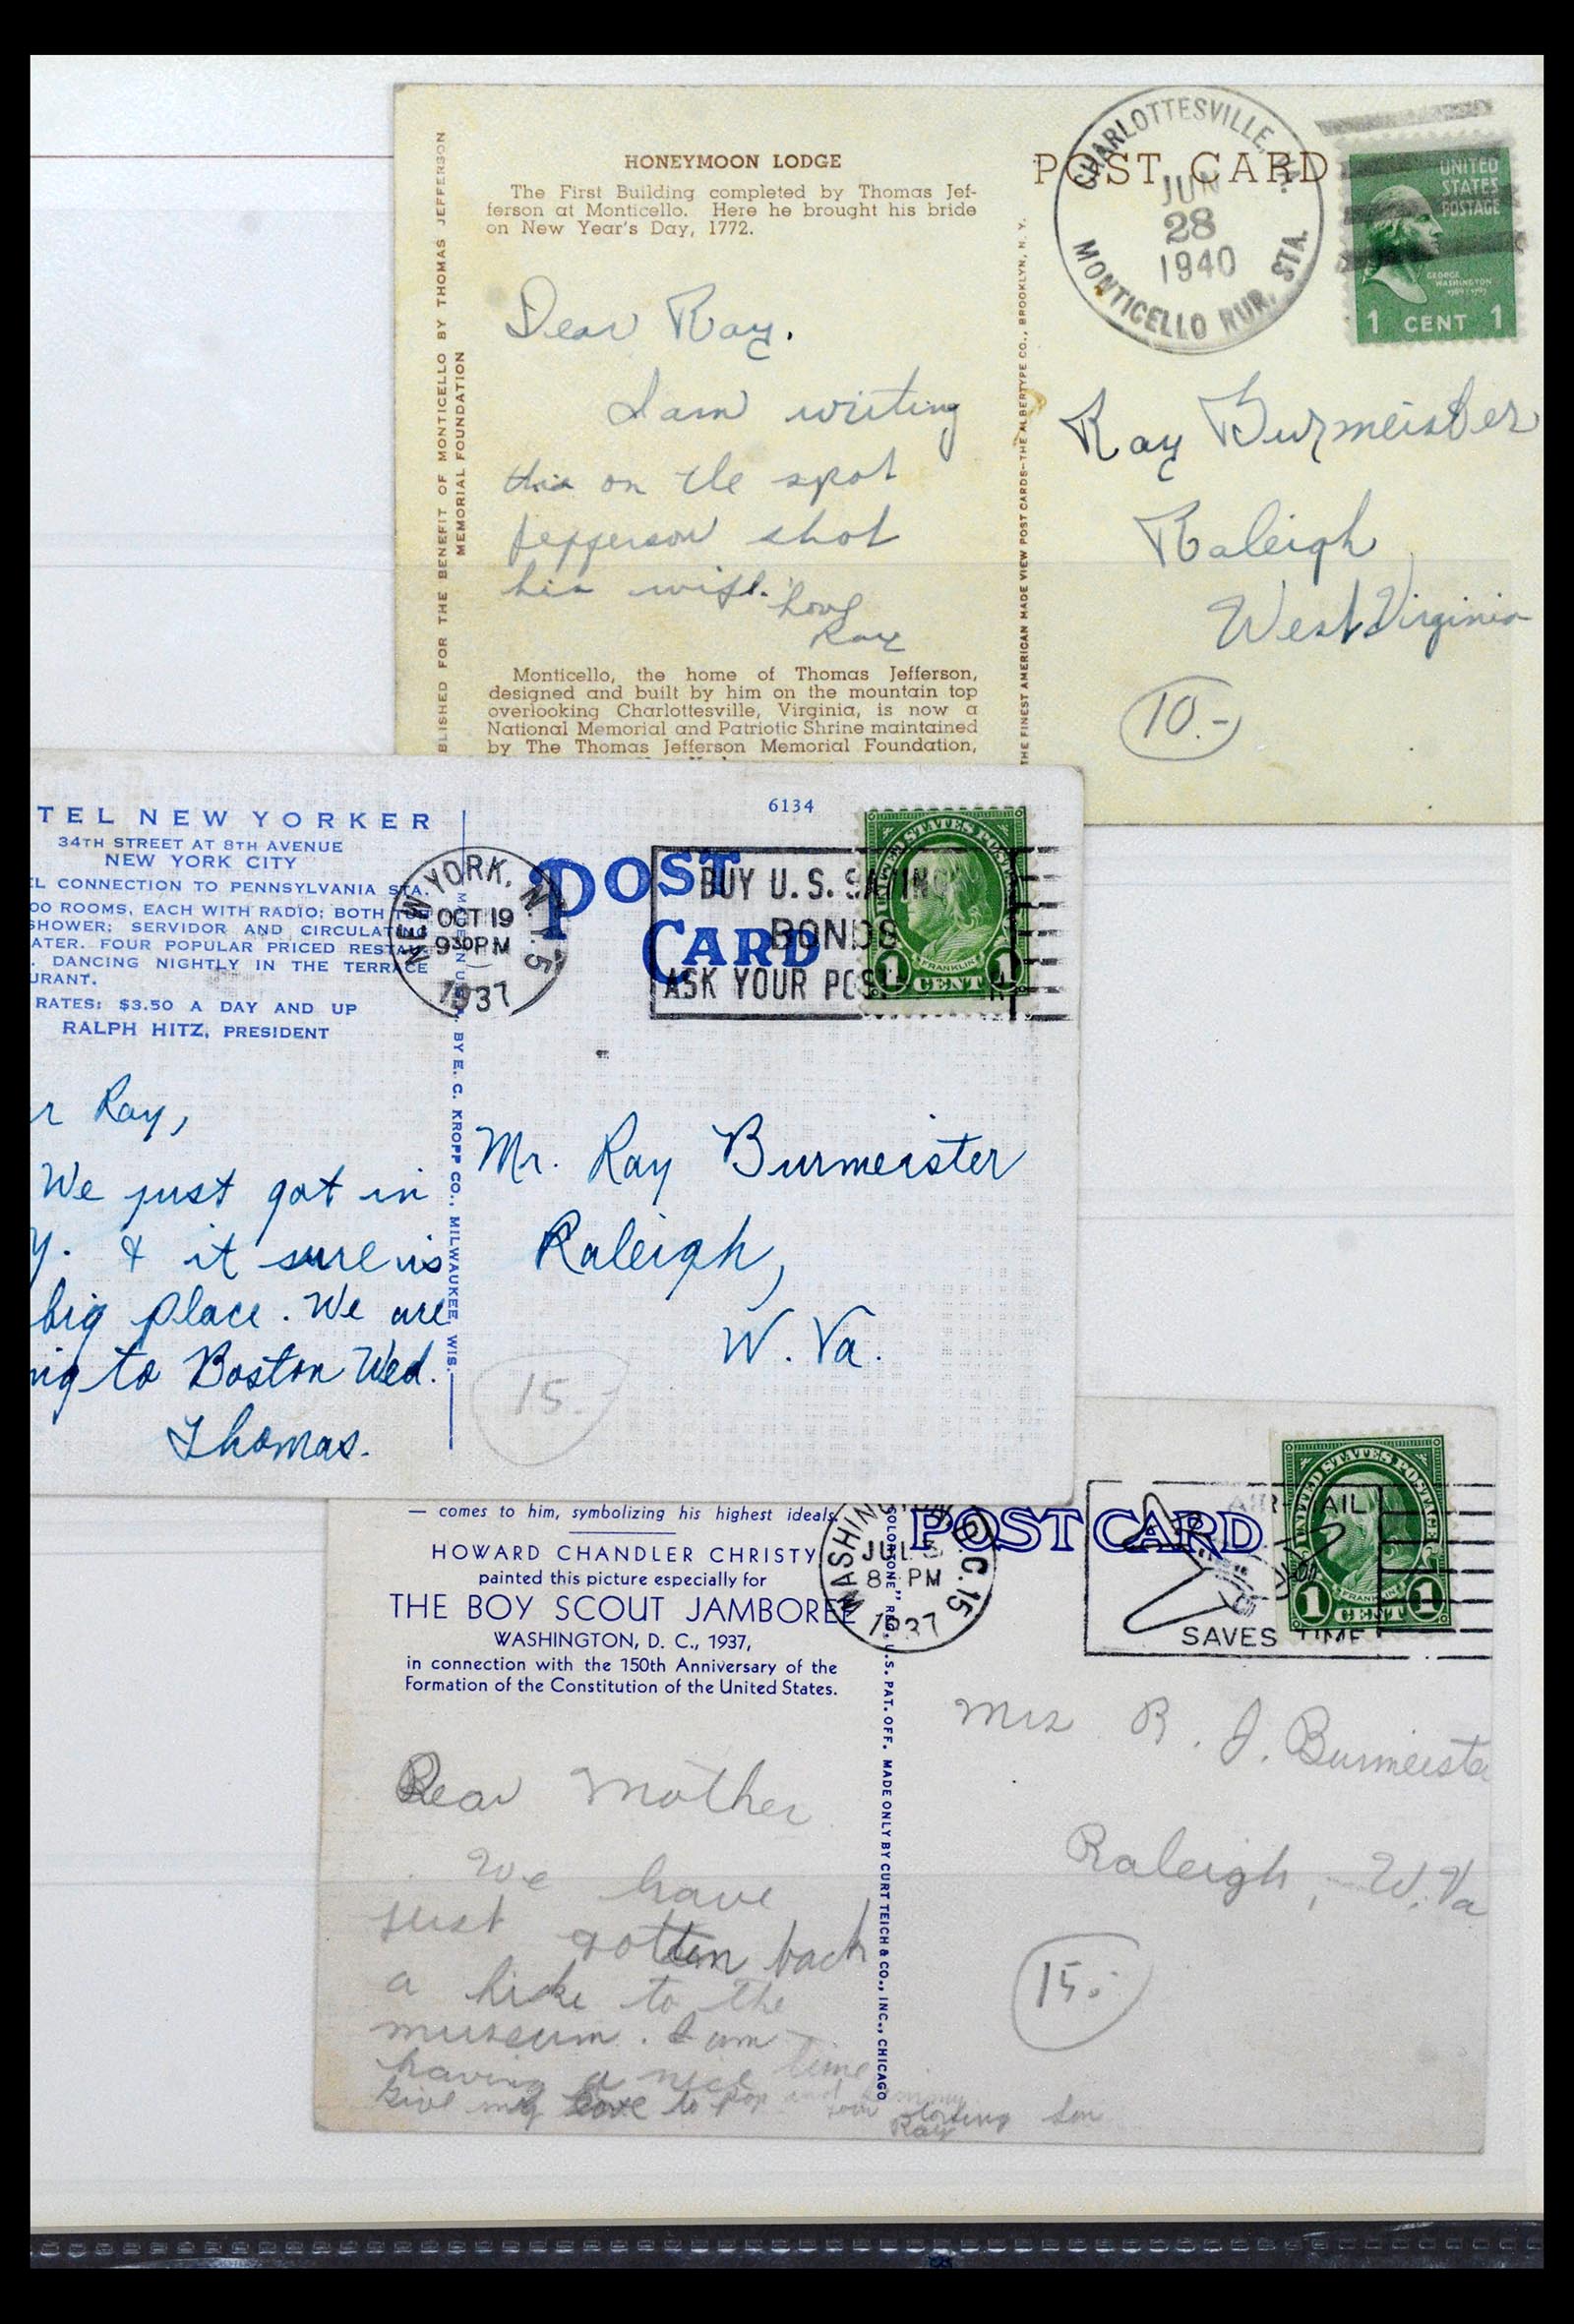 HONEYMOON LODGE
The First Building completed by Thomas Jef-
ferson at Monticello. Here he brought his bride
on New Year's Day, 1772.
Dear Ray.
I am writing
this on the spot
Jefferson shot
his wife.
Love
Ray
Monticello, the home of Thomas Jefferson,
designed and built by him on the mountain top
overlooking Charlottesville, Virginia, is now a
National Memorial and Patriotic Shrine maintained
by The Thomas Jefferson Memorial Foundation,
BLISHED FOR THE BENEFIT OF MONTICELLO BY THOMAS JEFFERSON
MEMORIAL FOUNDATION
THE FINEST AMERICAN MADE VIEW POST CARDS—THE ALBERTYPE CO., BROOKLYN, N. Y.
POST CARD
CHARLOTTESVILLE, VA.
JUN
28
1940
MONTICELLO RUR. STA.
UNITED
STATES
POSTAGE
GEORGE
WASHINGTON
1 CENT 1
Ray Burmeister
Raleigh
West Virginia
10.-
TEL NEW YORKER
34TH STREET AT 8TH AVENUE
NEW YORK CITY
EL CONNECTION TO PENNSYLVANIA STA.
00 ROOMS, EACH WITH RADIO; BOTH TUB
SHOWER; SERVIDOR AND CIRCULATING
ATER. FOUR POPULAR PRICED RESTAU-
. DANCING NIGHTLY IN THE TERRACE
URANT.
RATES: $3.50 A DAY AND UP
RALPH HITZ, PRESIDENT
r Ray,
We just got in
Y. & it sure is
big place. We are
ng to Boston Wed.
Thomas.
BY E. C. KROPP CO., MILWAUKEE, WIS.
6134
POST
CARD
NEW YORK, N.Y. 5
OCT 19
930PM
1937
BUY U.S. SAVINGS
BONDS
ASK YOUR POST
UNITED STATES POSTAGE
FRANKLIN
1 CENT 1
Mr. Ray Burmeister
Raleigh,
W. Va.
15.-
— comes to him, symbolizing his highest ideals.
HOWARD CHANDLER CHRISTY
painted this picture especially for
THE BOY SCOUT JAMBOREE
WASHINGTON, D. C., 1937,
in connection with the 150th Anniversary of the
Formation of the Constitution of the United States.
Dear Mother
We have
just gotten back
a hike to the
museum. I am
having a nice time
Give my love to Pop and
your
loving son
Ray
COLORTONE" REG. U.S. PAT. OFF. MADE ONLY BY CURT TEICH & CO., INC., CHICAGO
POST CARD
WASHINGTON, D.C. 15
JUL 5
8 PM
1937
AIR MAIL
SAVES TIME
UNITED STATES POSTAGE
FRANKLIN
1 CENT 1
Mrs R. J. Burmeister
Raleigh, W. Va
15.-